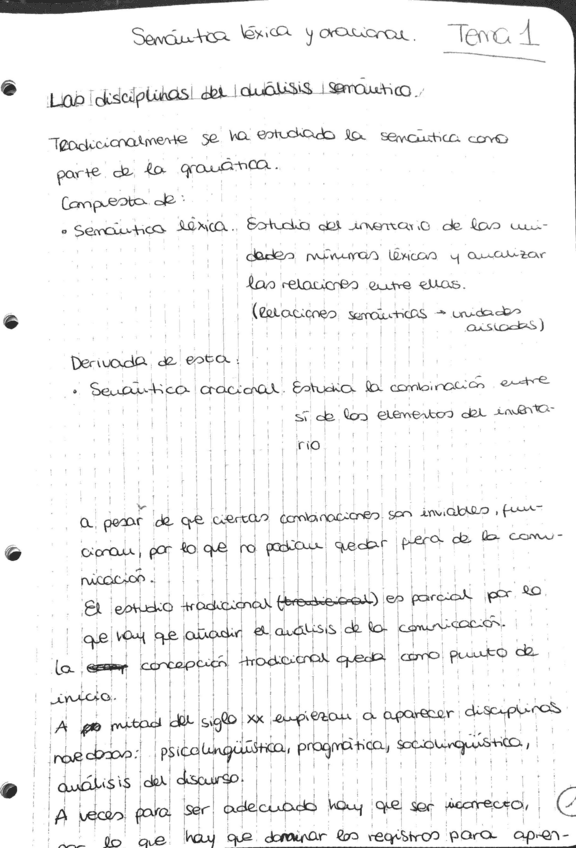 Semántica léxica y oracional. Tema 1
Las disciplinas del análisis semántico.
Tradicionalmente se ha estudiado la semántica como
parte de la gramática.
Compuesta de:
• Semántica léxica. Estudio del inventario de las uni-
dades mínimas léxicas y analizar
las relaciones entre ellas.
(Relaciones semánticas → unidades
aisladas)
Derivada de esta:
• Semántica oracional. Estudia la combinación entre
sí de los elementos del inventa-
rio
a pesar de que ciertas combinaciones son inviables, fun-
cionan, por lo que no podían quedar fuera de la comu-
nicación.
El estudio tradicional (tradicional) es parcial por lo
que hay que añadir el análisis de la comunicación.
La concepción tradicional queda como punto de
inicio.
A mitad del siglo XX empiezan a aparecer disciplinas
novedosas: psicolingüística, pragmática, sociolingüística,
análisis del discurso.
A veces para ser adecuado hay que ser incorrecto,
por lo que hay que dominar los registros para apren-